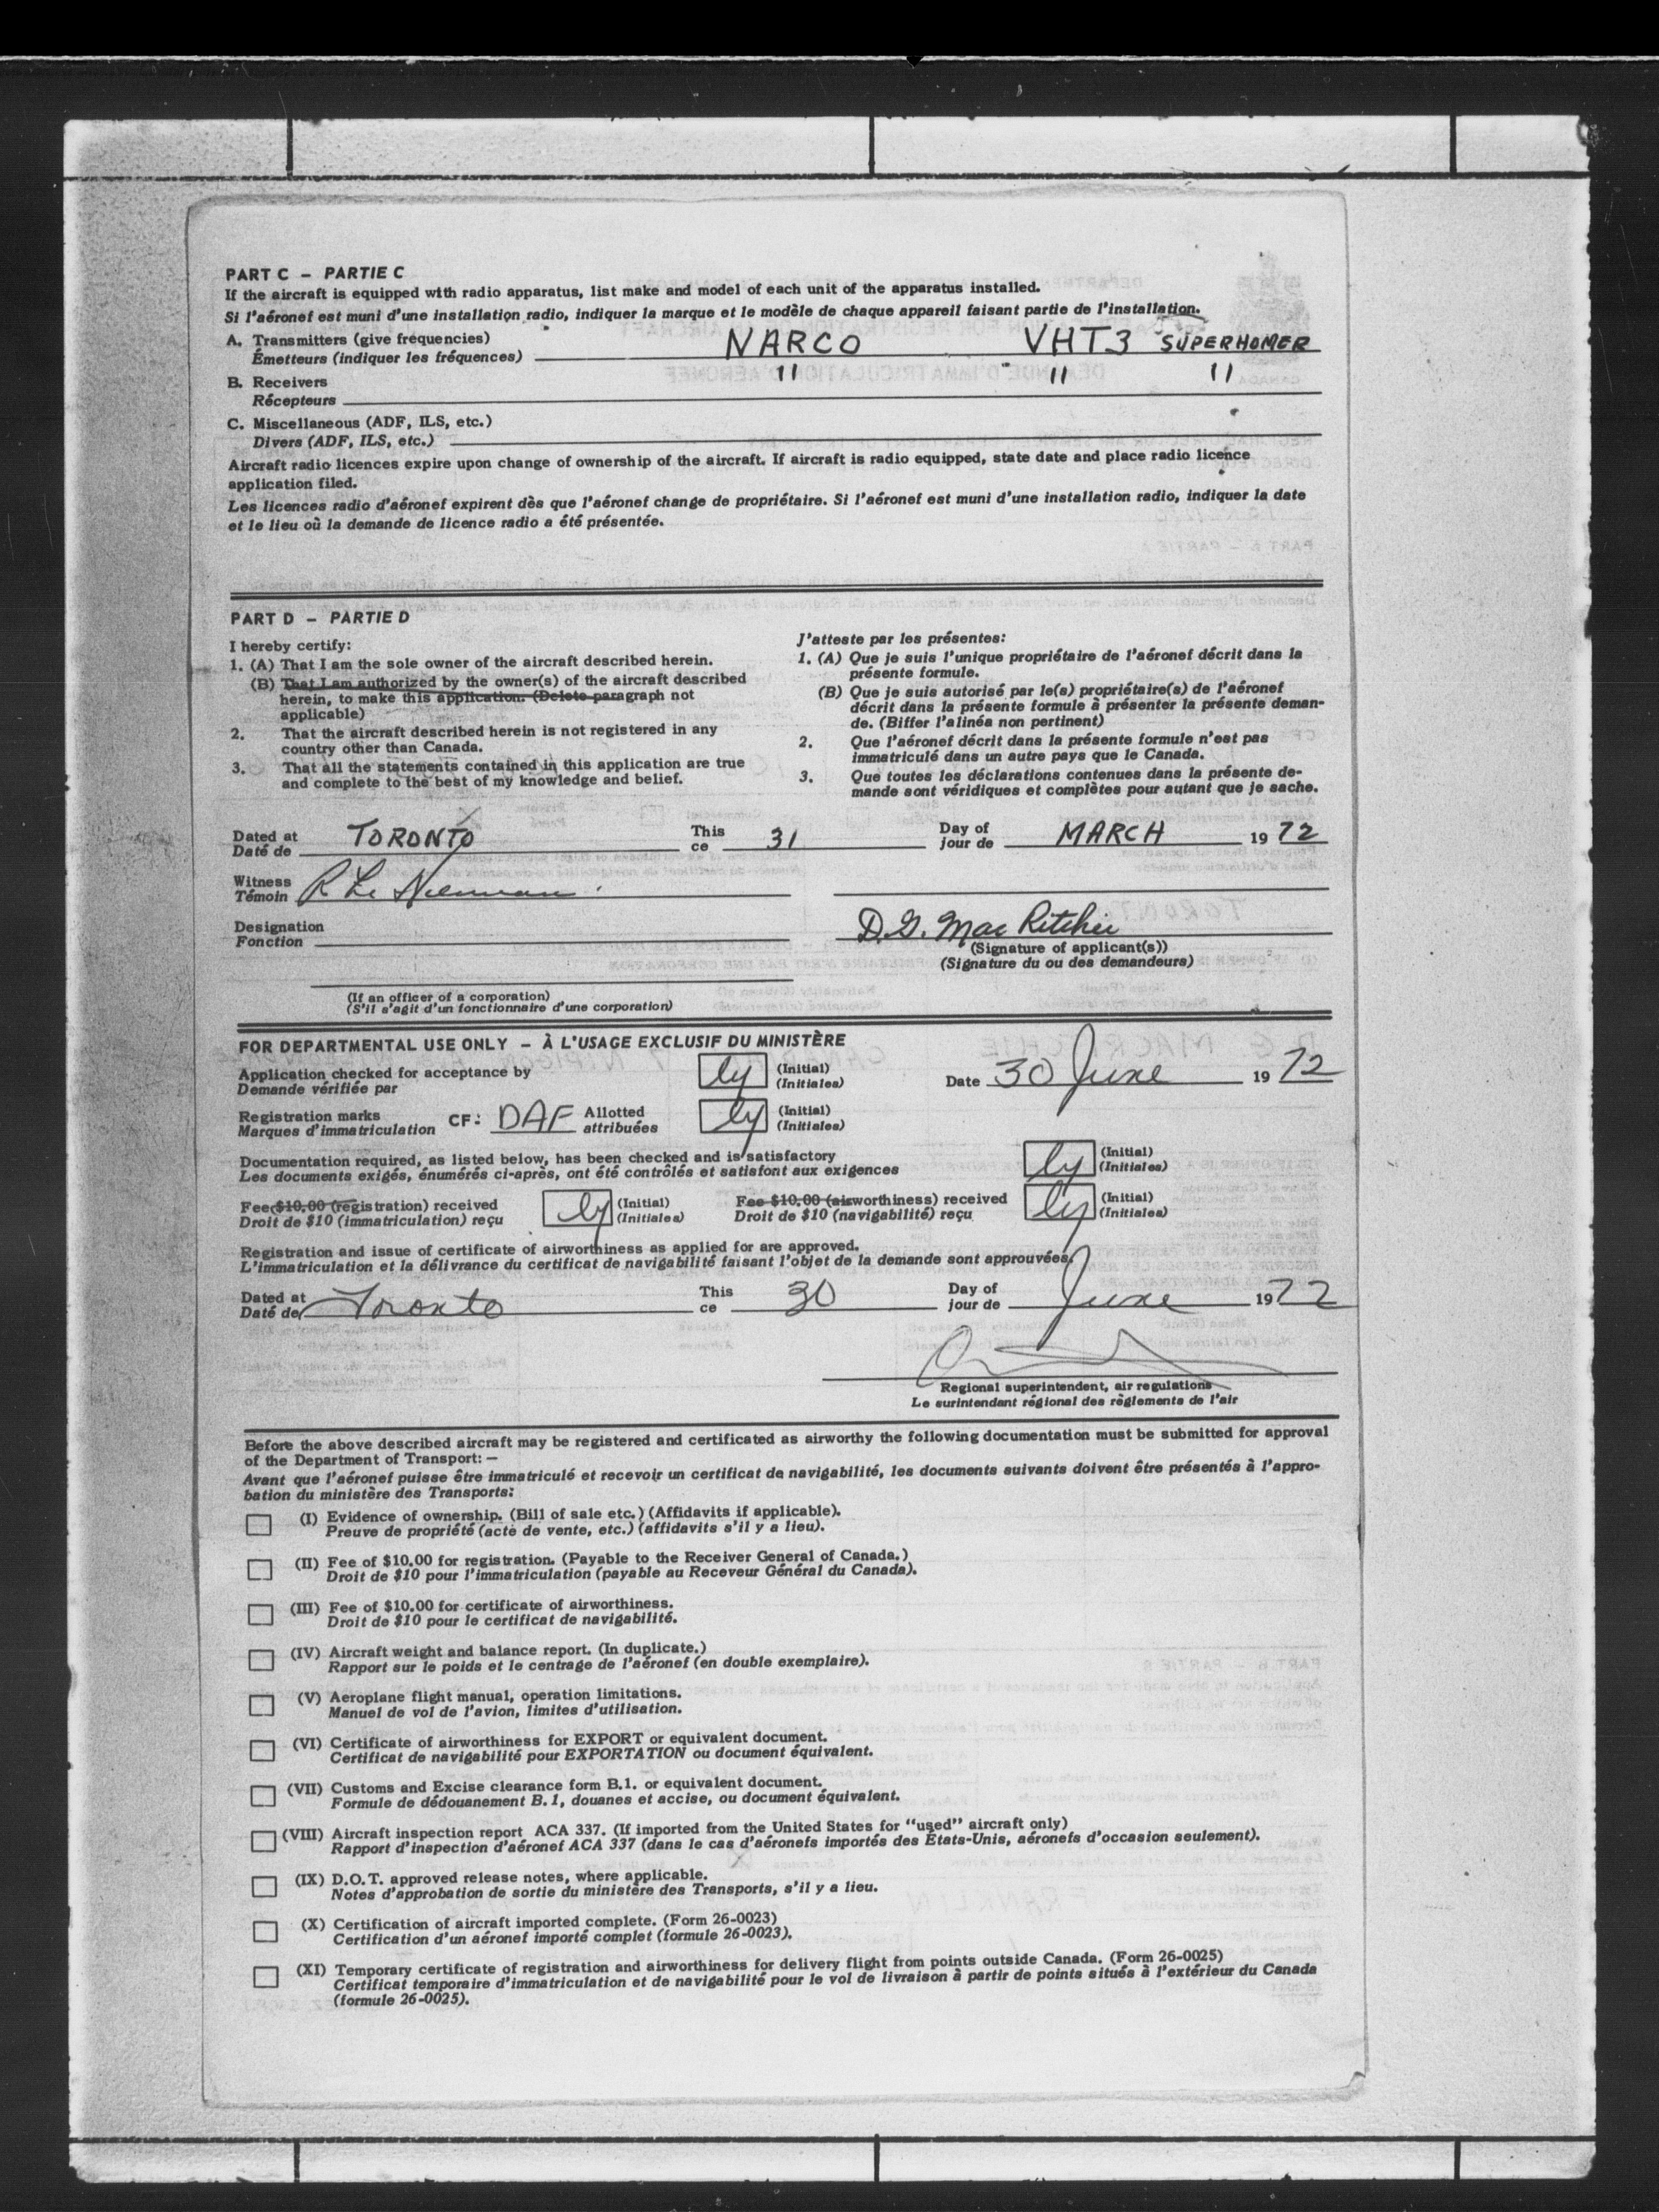 PART C – PARTIE C
If the aircraft is equipped with radio apparatus, list make and model of each unit of the apparatus installed.
Si l'aéronef est muni d'une installation radio, indiquer la marque et le modèle de chaque appareil faisant partie de l'installation.
A. Transmitters (give frequencies) NARCO VHT3 SUPERHOMER
Émetteurs (indiquer les fréquences)
B. Receivers " " "
Récepteurs
C. Miscellaneous (ADF, ILS, etc.)
Divers (ADF, ILS, etc.)
Aircraft radio licences expire upon change of ownership of the aircraft. If aircraft is radio equipped, state date and place radio licence
application filed.
Les licences radio d'aéronef expirent dès que l'aéronef change de propriétaire. Si l'aéronef est muni d'une installation radio, indiquer la date
et le lieu où la demande de licence radio a été présentée.
PART D – PARTIE D
I hereby certify:
1. (A) That I am the sole owner of the aircraft described herein.
(B) That I am authorized by the owner(s) of the aircraft described
herein, to make this application. (Delete paragraph not
applicable)
2. That the aircraft described herein is not registered in any
country other than Canada.
3. That all the statements contained in this application are true
and complete to the best of my knowledge and belief.
J'atteste par les présentes:
1. (A) Que je suis l'unique propriétaire de l'aéronef décrit dans la
présente formule.
(B) Que je suis autorisé par le(s) propriétaire(s) de l'aéronef
décrit dans la présente formule à présenter la présente deman-
de. (Biffer l'alinéa non pertinent)
2. Que l'aéronef décrit dans la présente formule n'est pas
immatriculé dans un autre pays que le Canada.
3. Que toutes les déclarations contenues dans la présente de-
mande sont véridiques et complètes pour autant que je sache.
Dated at TORONTO This 31 Day of MARCH 19 72
Daté de ce jour de
Witness
Témoin
Designation D.G. MacRitchie
Fonction
(Signature of applicant(s))
(Signature du ou des demandeurs)
(If an officer of a corporation)
(S'il s'agit d'un fonctionnaire d'une corporation)
FOR DEPARTMENTAL USE ONLY – À L'USAGE EXCLUSIF DU MINISTÈRE
Application checked for acceptance by ly (Initial) Date 30 June 19 72
Demande vérifiée par (Initiales)
Registration marks CF: DAF Allotted ly (Initial)
Marques d'immatriculation attribuées (Initiales)
Documentation required, as listed below, has been checked and is satisfactory ly (Initial)
Les documents exigés, énumérés ci-après, ont été contrôlés et satisfont aux exigences (Initiales)
Fee $10.00 (registration) received ly (Initial) Fee $10.00 (airworthiness) received ly (Initial)
Droit de $10 (immatriculation) reçu (Initiales) Droit de $10 (navigabilité) reçu (Initiales)
Registration and issue of certificate of airworthiness as applied for are approved.
L'immatriculation et la délivrance du certificat de navigabilité faisant l'objet de la demande sont approuvées.
Dated at Toronto This 30 Day of June 19 72
Daté de ce jour de
Regional superintendent, air regulations
Le surintendant régional des règlements de l'air
Before the above described aircraft may be registered and certificated as airworthy the following documentation must be submitted for approval
of the Department of Transport: –
Avant que l'aéronef puisse être immatriculé et recevoir un certificat de navigabilité, les documents suivants doivent être présentés à l'appro-
bation du ministère des Transports:
(I) Evidence of ownership. (Bill of sale etc.) (Affidavits if applicable).
Preuve de propriété (acte de vente, etc.) (affidavits s'il y a lieu).
(II) Fee of $10.00 for registration. (Payable to the Receiver General of Canada.)
Droit de $10 pour l'immatriculation (payable au Receveur Général du Canada).
(III) Fee of $10.00 for certificate of airworthiness.
Droit de $10 pour le certificat de navigabilité.
(IV) Aircraft weight and balance report. (In duplicate.)
Rapport sur le poids et le centrage de l'aéronef (en double exemplaire).
(V) Aeroplane flight manual, operation limitations.
Manuel de vol de l'avion, limites d'utilisation.
(VI) Certificate of airworthiness for EXPORT or equivalent document.
Certificat de navigabilité pour EXPORTATION ou document équivalent.
(VII) Customs and Excise clearance form B.1. or equivalent document.
Formule de dédouanement B.1, douanes et accise, ou document équivalent.
(VIII) Aircraft inspection report ACA 337. (If imported from the United States for "used" aircraft only)
Rapport d'inspection d'aéronef ACA 337 (dans le cas d'aéronefs importés des États-Unis, aéronefs d'occasion seulement).
(IX) D.O.T. approved release notes, where applicable.
Notes d'approbation de sortie du ministère des Transports, s'il y a lieu.
(X) Certification of aircraft imported complete. (Form 26-0023)
Certification d'un aéronef importé complet (formule 26-0023).
(XI) Temporary certificate of registration and airworthiness for delivery flight from points outside Canada. (Form 26-0025)
Certificat temporaire d'immatriculation et de navigabilité pour le vol de livraison à partir de points situés à l'extérieur du Canada
(formule 26-0025).